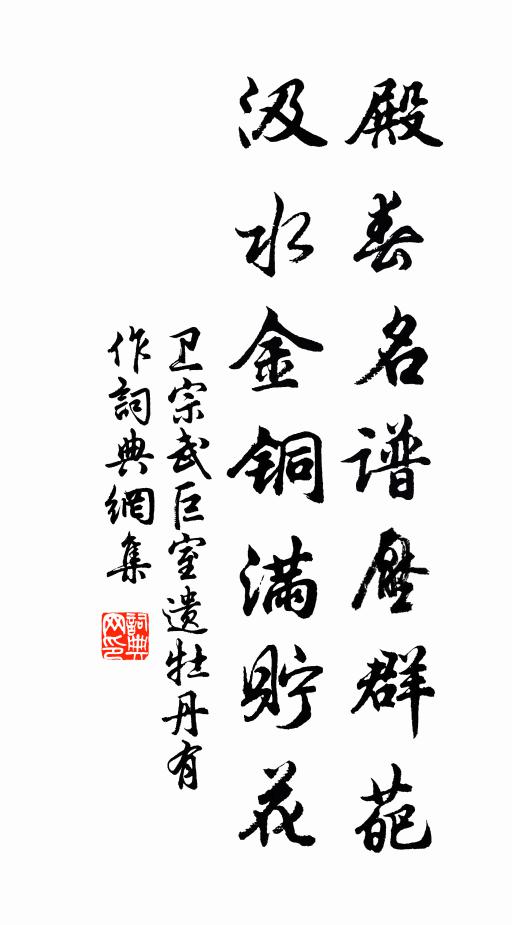 殿春名谱压群葩
汲水金铜满贮花
卫宗武巨室遗牡丹有
作詞典網集
詞典网印